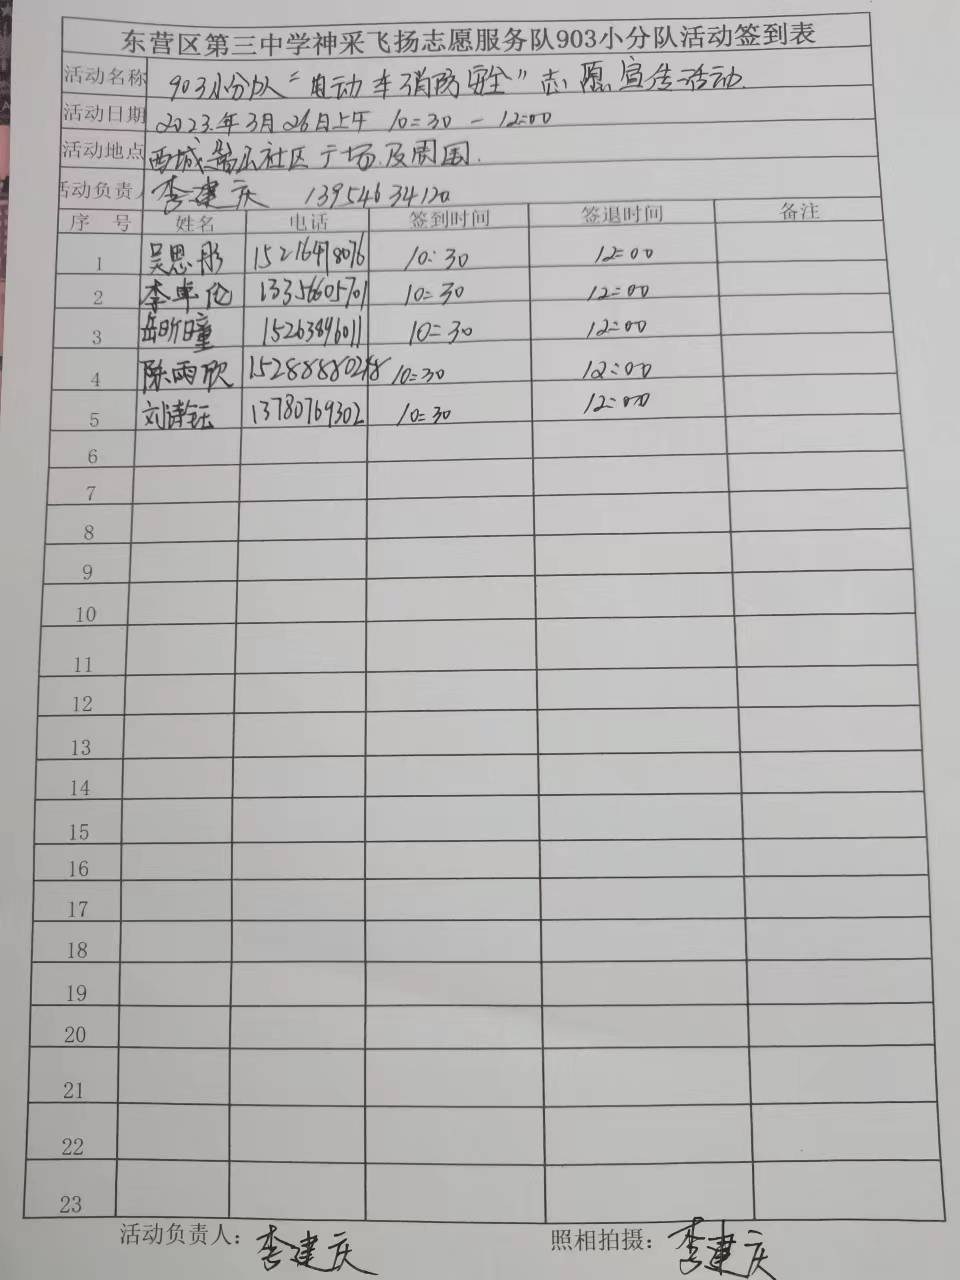 东营区第三中学神采飞扬志愿服务队903小分队活动签到表
活动名称 903小分队“电动车消防安全”志愿宣传活动.
活动日期 2023.年3月26日上午 10:30 - 12:00
活动地点 西城 社区广场及周围.
活动负责人 李建庆 13954634120
序 号 姓名 电话 签到时间 签退时间 备注
1 吴思彤 15216478076 10:30 12:00
2 李卓伦 13356605701 10:30 12:00
3 岳昕曈 15263896011 10:30 12:00
4 陈雨欣 15288880248 10:30 12:00
5 刘清钰 13780769302 10:30 12:00
6
7
8
9
10
11
12
13
14
15
16
17
18
19
20
21
22
23
活动负责人：李建庆 照相拍摄：李建庆